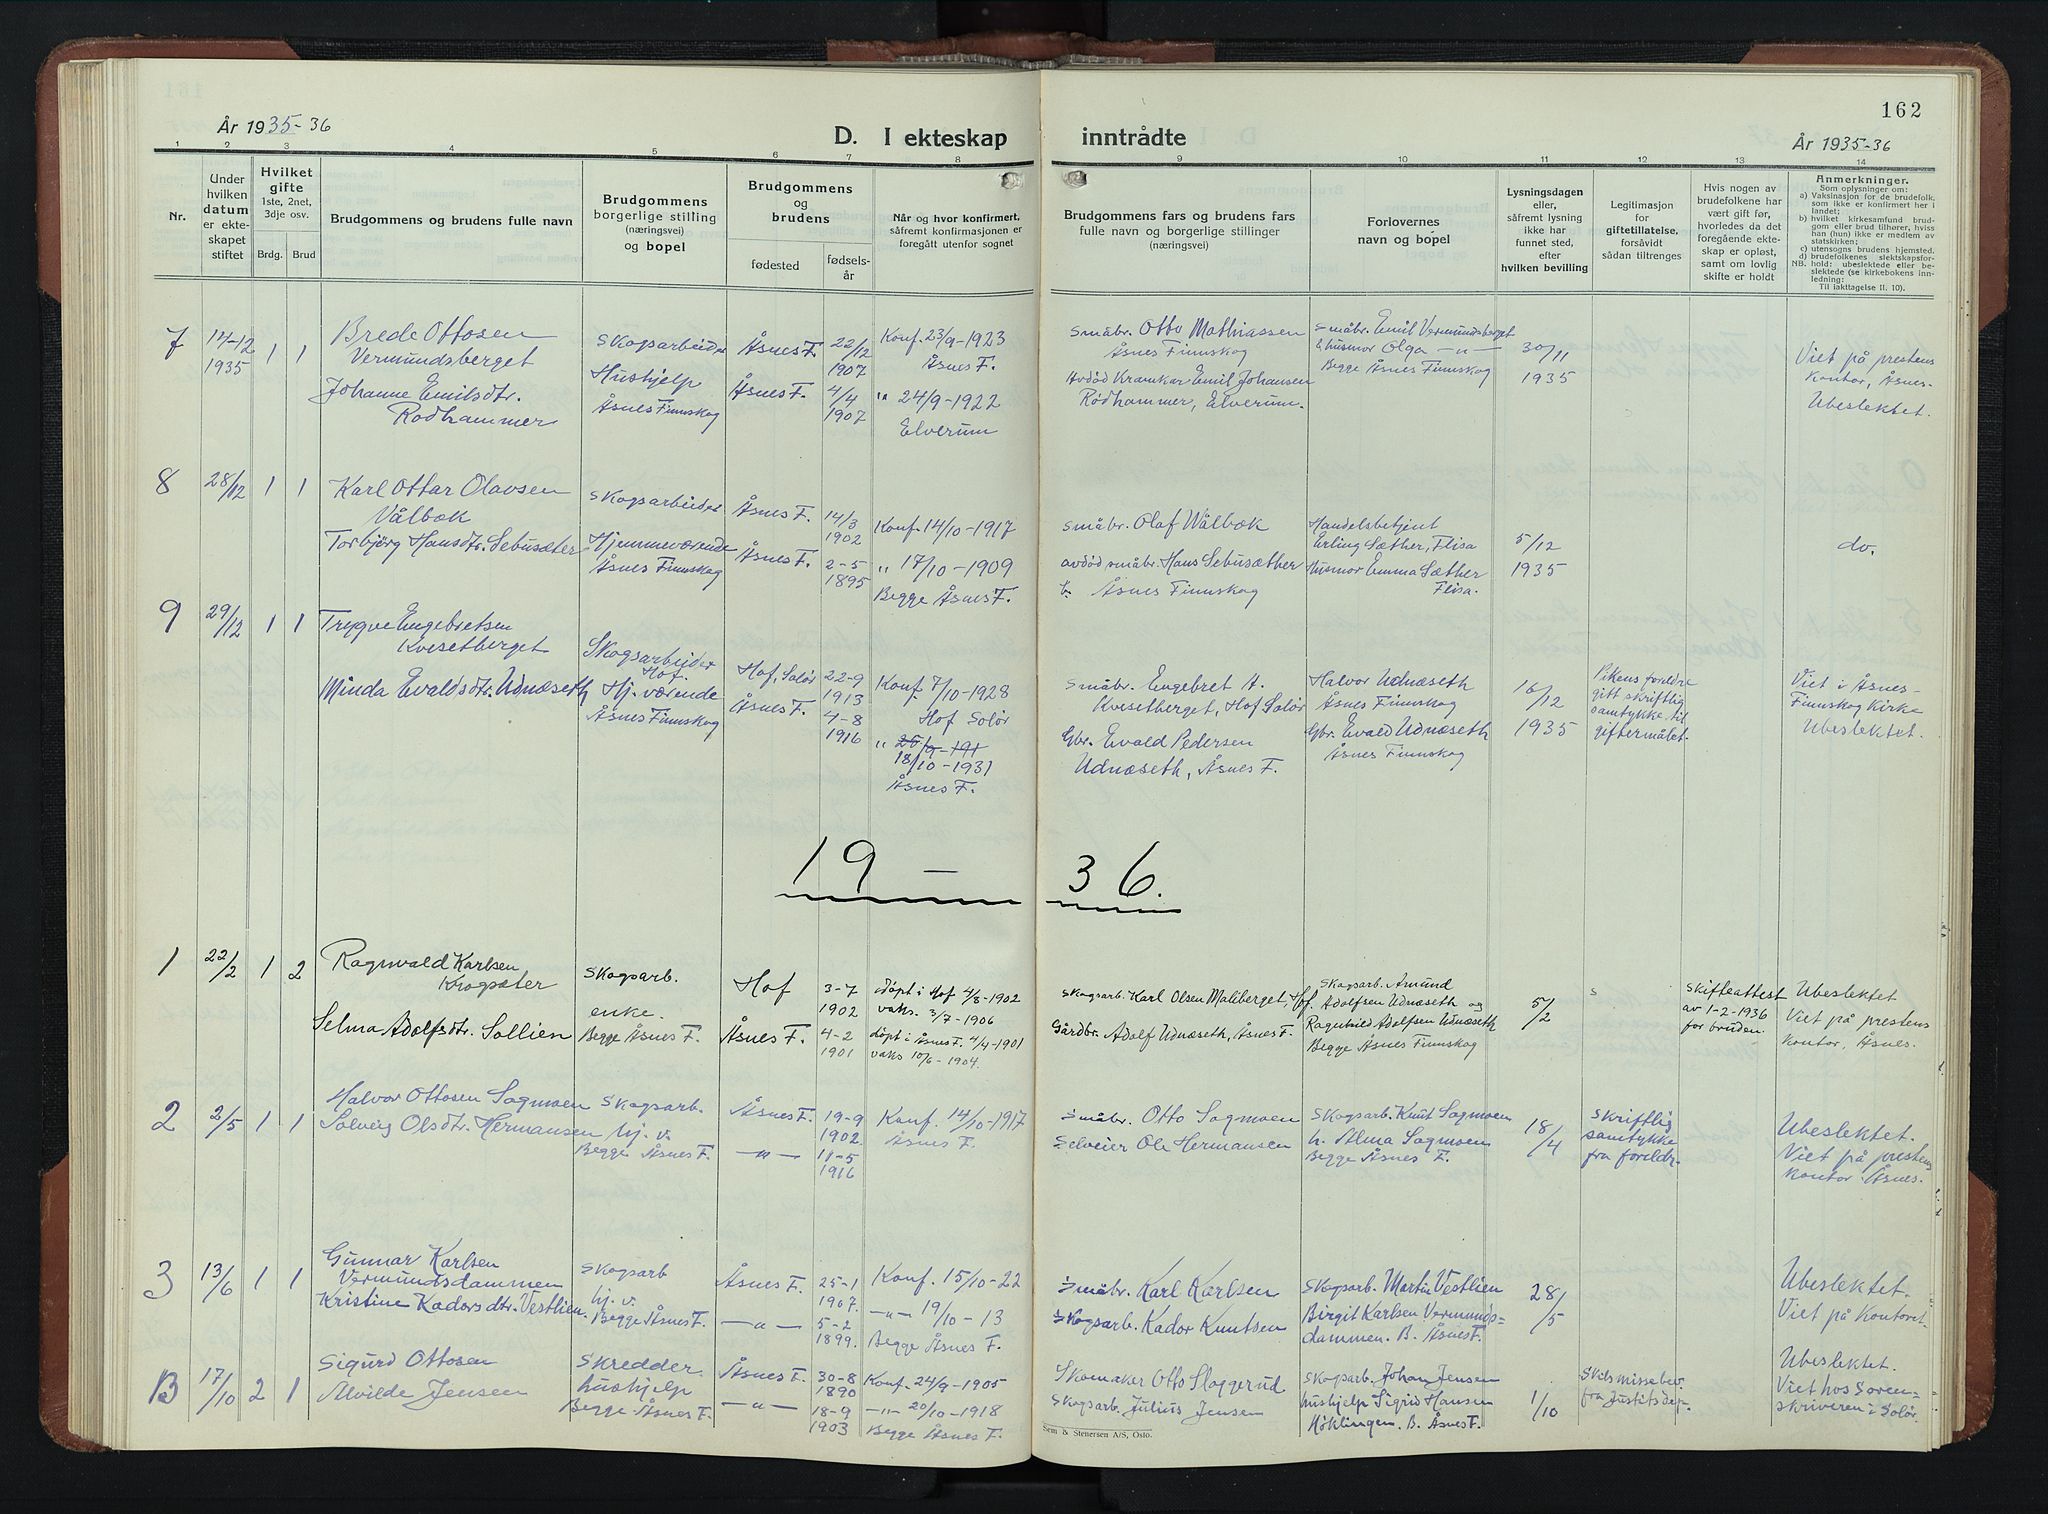 162
År 1935-36
D. I ekteskap inntrådte
År 1935-36
1 2 3 4 5 6 7 8 9 10 11 12 13 14
Nr.
Under
hvilken
datum
er ekte-
skapet
stiftet
Hvilket
gifte
1ste, 2net,
3dje osv.
Brdg. Brud
Brudgommens og brudens fulle navn
Brudgommens
borgerlige stilling
(næringsvei)
og bopel
Brudgommens
og
brudens
fødested
fødsels-
år
Når og hvor konfirmert,
såfremt konfirmasjonen er
foregått utenfor sognet
Brudgommens fars og brudens fars
fulle navn og borgerlige stillinger
(næringsvei)
Forlovernes
navn og bopel
Lysningsdagen
eller,
såfremt lysning
ikke har
funnet sted,
efter
hvilken bevilling
Legitimasjon
for
giftetillatelse,
forsåvidt
sådan tiltrenges
Hvis nogen av
brudefolkene har
vært gift før,
hvorledes da det
foregående ekte-
skap er opløst,
samt om lovlig
skifte er holdt
Anmerkninger.
Som oplysninger om:
a) Vaksinasjon for de brudefolk,
som ikke er konfirmert her i
landet;
b) hvilket kirkesamfund brud-
gom eller brud tilhører, hviss
han (hun) ikke er medlem av
statskirken;
c) utensogns brudens hjemsted.
d) brudefolkenes slektskapsfor-
NB. hold: ubeslektede eller be-
slektede (se kirkebokens inn-
ledning:
Til iakttagelse II. 10).
7
14-12
1935
1 1
Brede Ottosen
Vermundsberget
Johanne Emilsdtr.
Rødhammer
Skogsarbeider
Hushjelp
Åsnes Finnskog
Åsnes F.
Åsnes F.
22/12
1907
4/4
1907
Konf. 23/9-1923
Åsnes F.
" 24/9-1922
Elverum
Småbr. Otto Mathiassen
Åsnes Finnskog
Avdød Krankar Emil Johansen
Rødhammer, Elverum.
Småbr. Emil Vermundsberget
husmor Olga -"-
Begge Åsnes Finnskog
30/11
1935
Viet på prestens
kontor, Åsnes-
Ubeslektet.
8
28/12
1 1
Karl Ottar Olavsen
Vålbæk
Torbjørg Hansdtr. Sebusæter
Skogsarbeider
Hjemmeværende
Åsnes Finnskog
Åsnes F.
Åsnes F.
14/3
1902
2-5
1895
Konf. 14/10-1917
" 17/10-1909
Begge Åsnes F.
Småbr. Olaf Wålbæk
avdød småbr. Hans Sebusæther
Åsnes Finnskog
Handelsbetjent
Erling Sæther, Flisa
Husmor Emma Sæther
Flisa.
5/12
1935
do.
9
29/12
1 1
Trygve Engebretsen
Kvesetberget
Minda Evaldsdtr. Udnæseth
Skogsarbeider
Hof.
Hj. værende
Åsnes Finnskog
Hof, Solør
Åsnes F.
22-9
1913
4-8
1916
Konf. 7/10-1928
Hof Solør
" 26/9-191
18/10-1931
Åsnes F.
Småbr. Engebret A.
Kvesetberget, Hof Solør
Gbr. Evald Pedersen
Udnæseth, Åsnes F.
Halvor Udnæseth
Åsnes Finnskog
Gbr. Evald Udnæseth
Åsnes Finnskog
16/12
1935
Pikens foreldre
gitt skriftlig
samtykke til
giftermålet.
Viet i Åsnes-
Finnskog Kirke
Ubeslektet.
19 - 36.
1
22/2
1 2
Ragnvald Karlsen
Krogsæter
Selma Adolfsdtr. Sollien
Skogsarb.
enke.
Begge Åsnes F.
Hof
Åsnes F.
3-7
1902
4-2
1901
døpt i Hof 4/8-1902
vaks. 3/7-1906
døpt i Åsnes F. 4/4-1901
vaks 10/6-1904.
Skogsarb. Karl Olsen Maliberget, Hof.
Gårdbr. Adolf Udnæseth, Åsnes F.
Skogsarb. Amund
Adolfsen Udnæseth og
Ragnhild Adolfsen Udnæseth
Begge Åsnes Finnskog
5/2
s
Skifteattest
av 1-2-1936
for bruden.
Ubeslektet
Viet på prestens
kontor, Åsnes.
2
2/5
1 1
Halvor Ottosen Sagmoen
Solveig Olsdtr. Hermansen
Skogsarb.
hj. v.
Begge Åsnes F.
Åsnes F.
-"-
19-9
1902.
11-5
1916
Konf. 14/10-1917
Åsnes F.
Småbr. Otto Sagmoen
Selveier Ole Hermansen
Skogsarb. Knut Sagmoen
h. Alma Sagmoen
Begge Åsnes F.
18/4
Skriftlig
samtykke
fra foreldr.
Ubeslektet.
Viet på prestens
kontor. Åsnes.
3
13/6
1 1
Gunnar Karlsen
Vermundsdammen
Kristine Kadorsdtr. Vestlien.
Skogsarb
hj. v.
Begge Åsnes F.
Åsnes F.
-"-
25-1
1907.
5-2
1899.
Konf. 15/10-22
-"- 19/10-13
Begge Åsnes F.
Småbr. Karl Karlsen
Skogsarb. Kador Knutsen
Skogsarb. Martin Vestlien
Birgit Karlsen Vermunds-
dammen. B. Åsnes F.
28/5
Ubeslektet.
Viet på Kontoret.
B
17/10
2 1
Sigurd Ottosen
Alvilde Jensen
Skredder
hushjelp
Begge Åsnes F.
Åsnes F.
-"-
30-8
1890
18-9
1903
Konf. 24/9-1905
-"- 20/10-1918
Begge Åsnes F.
Skomaker Otto Sloggerud
Skogsarb. Julius Jensen
Skogsarb. Johan Jensen
hushjelp Sigrid Hansen
Høklingen. B. Åsnes F.
1/10
Skilsmissebev.
fra Justitsdep.
Ubeslektet.
Viet hos Soren-
skriveren i Solør.
Sem & Stenersen A/S, Oslo.